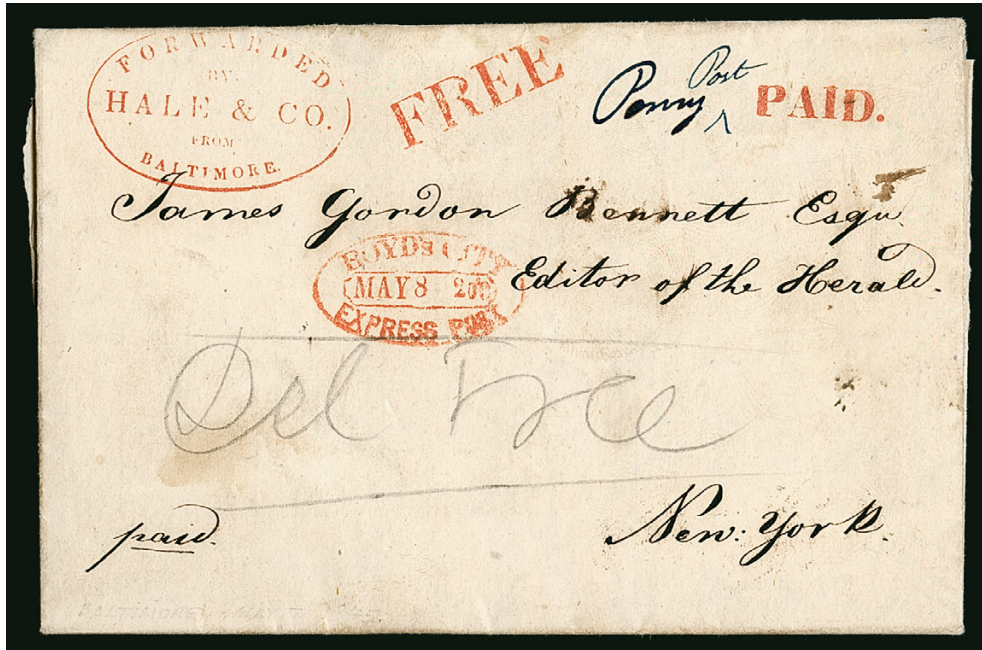 FORWARDED
BY
HALE & CO.
FROM
BALTIMORE.
FREE
Penny Post PAID.
James Gordon Bennett Esqu
Editor of the Herald.
BOYD'S CITY
MAY 8
EXPRESS POST
Del Free
New. York.
paid.
BALTIMORE MAY 7